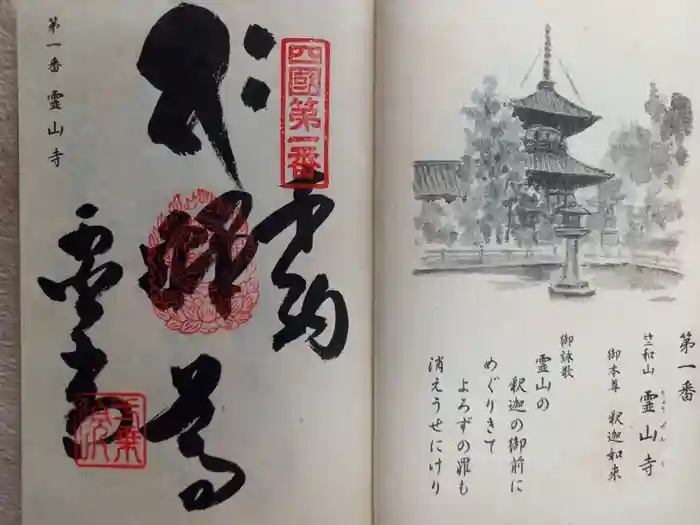 第一番
竺和山 霊山寺
りょうぜんじ
御本尊 釈迦如来
御詠歌
霊山の
釈迦の御前に
めぐりきて
よろずの罪も
消えうせにけり
四國第一番
奉納
釈迦尊
霊山寺
第一番 霊山寺